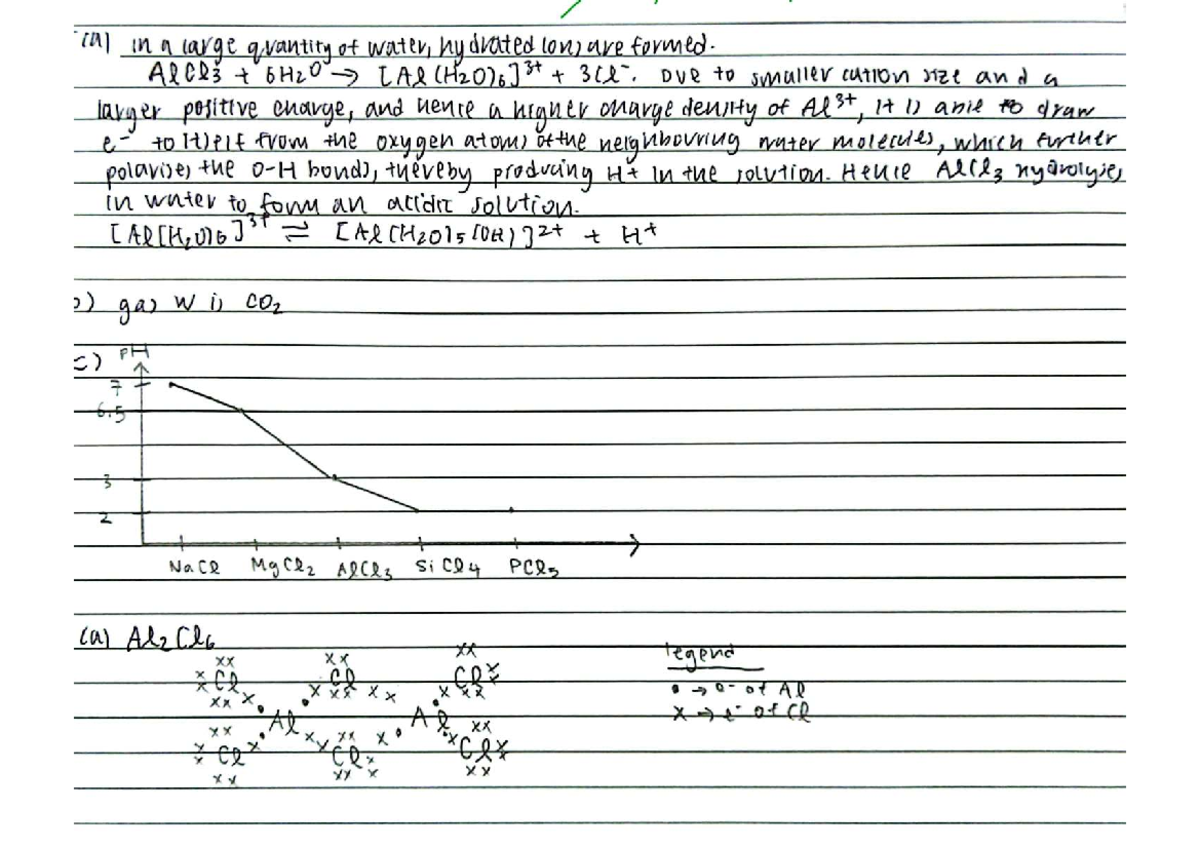 (a) in a large quantity of water, hydrated ions are formed.
AlCl3 + 6H2O → [Al(H2O)6]3+ + 3Cl-. Due to smaller cation size and a
larger positive charge, and hence a higher charge density of Al3+, it is able to draw
e- to itself from the oxygen atoms of the neighbouring water molecules, which further
polarises the O-H bonds, thereby producing H+ in the solution. Hence AlCl3 hydrolyses
in water to form an acidic solution.
[Al(H2O)6]3+ ⇌ [Al(H2O)5(OH)]2+ + H+
b) gas W is CO2
c) pH
7
6.5
3
2
NaCl MgCl2 AlCl3 SiCl4 PCl5
(a) Al2Cl6
legend
Cl Cl Cl
• → e- of Al
x → e- of Cl
Al Al
Cl Cl Cl